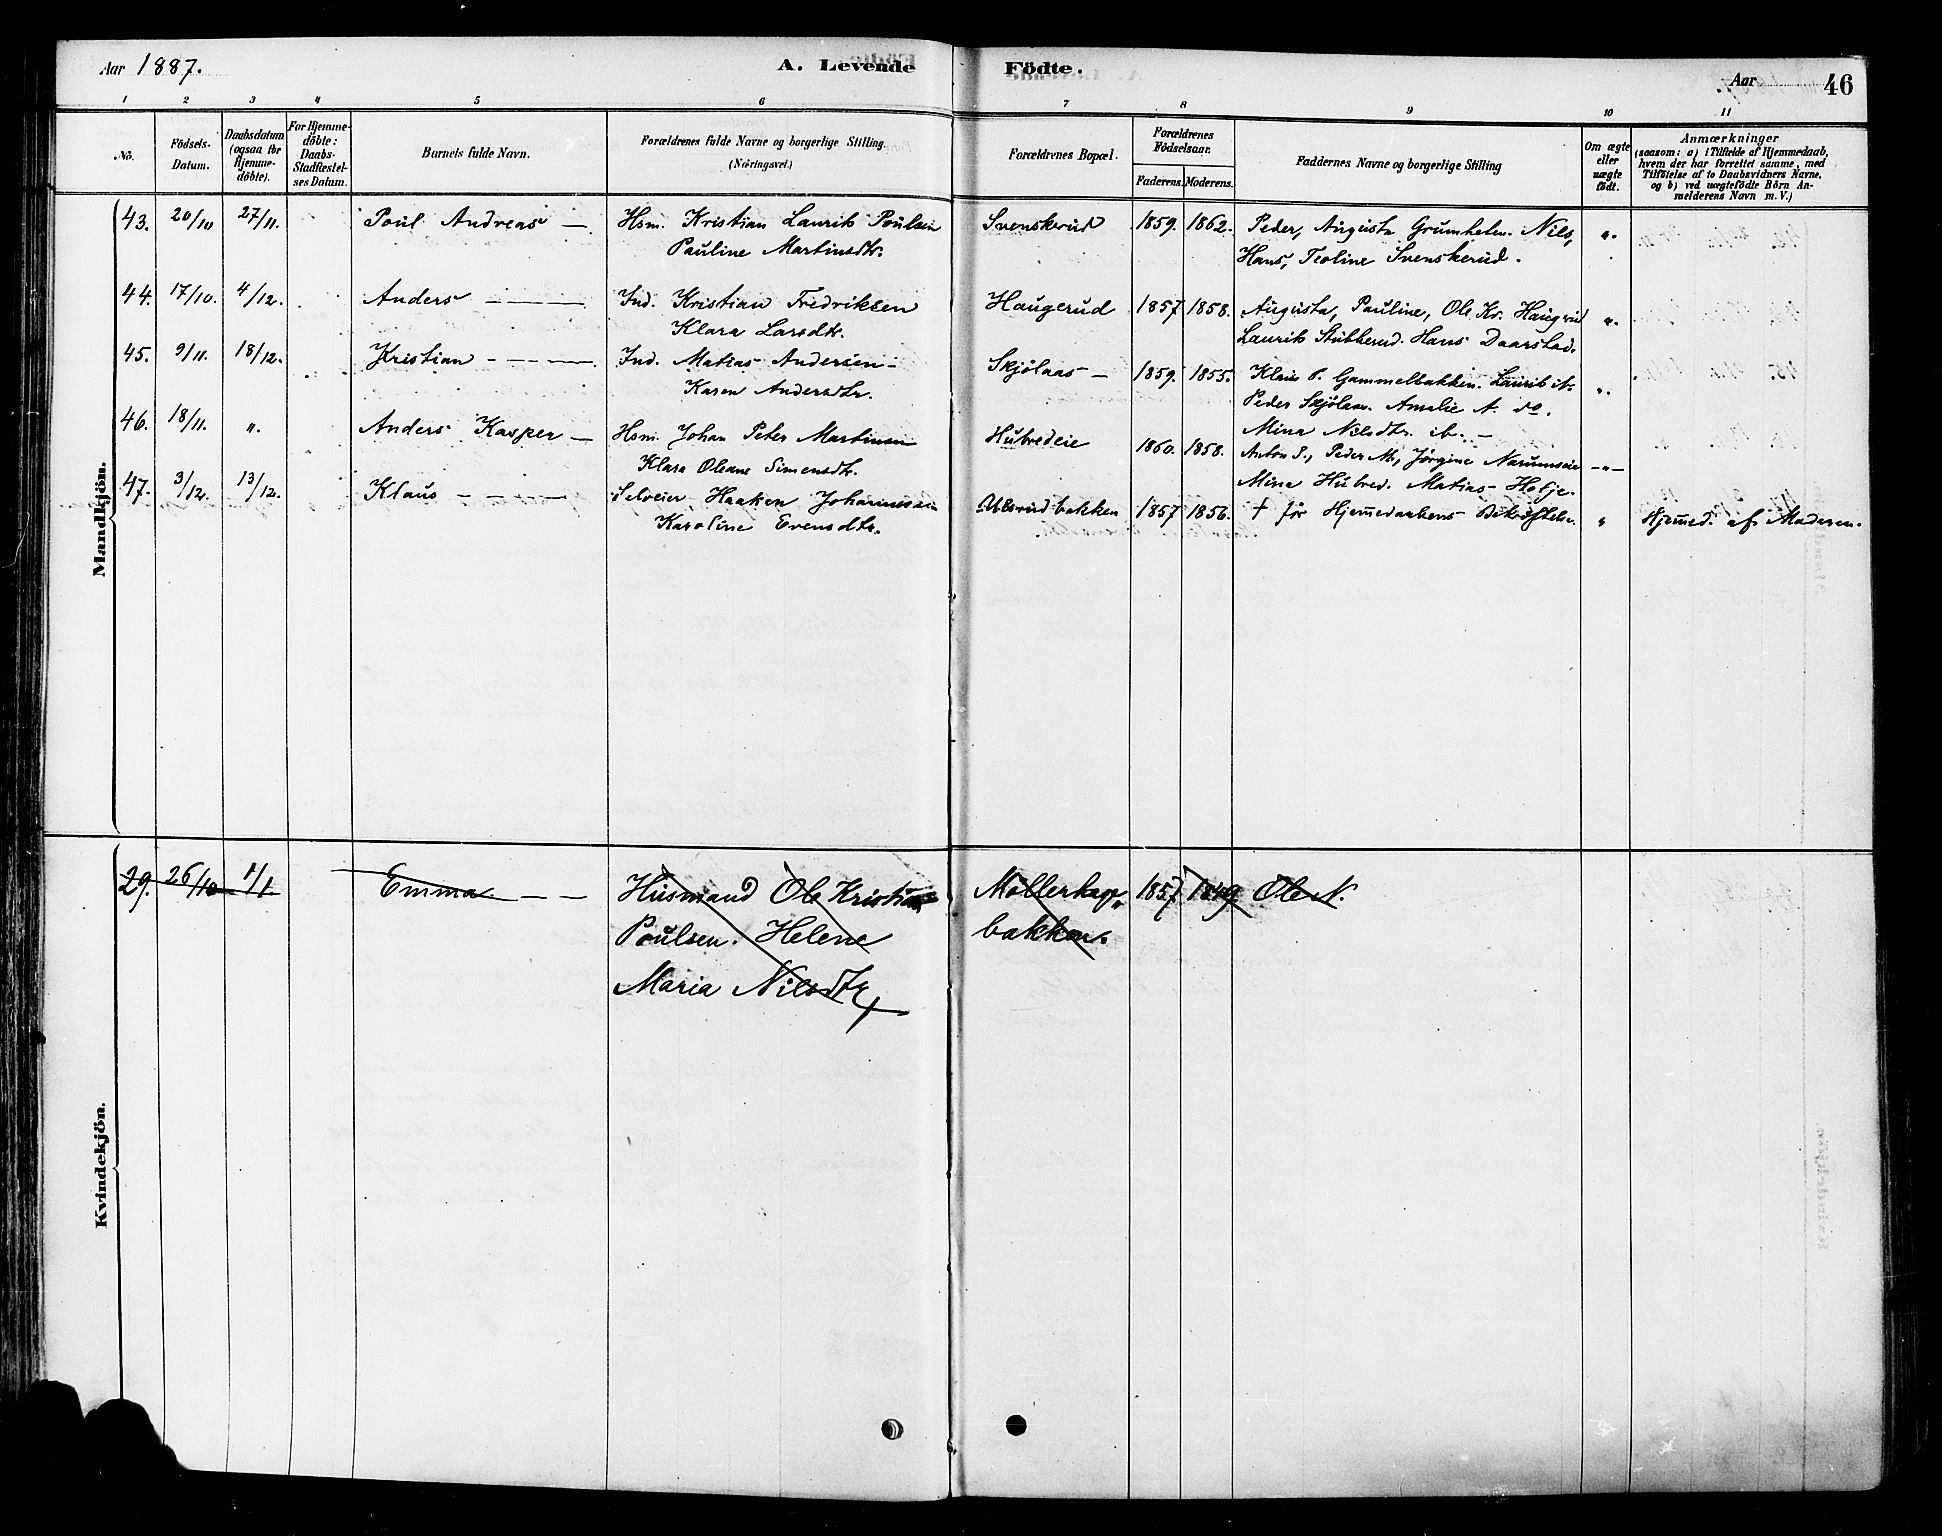 Aar 1887.
A. Levende
Födte.
Aar
46
1 2 3 4 5 6 7 8 9 10 11
No.
Födsels-Datum.
Daabsdatum (ogsaa for Hjemmedöbte).
For Hjemmedöbte: Daabs-Stadfæstelses Datum.
Barnets fulde Navn.
Forældrenes fulde Navne og borgerlige Stilling. (Näringsvei.)
Forældrenes Bopæl.
Forældrenes Födselsaar.
Faderens. Moderens.
Faddernes Navne og borgerlige Stilling
Om ægte eller uægte födt.
Anmærkninger
(saasom: a) i Tilfælde af Hjemmedaab, hvem der har forrettet samme, med Tilföielse af to Daabsvidners Navne, og b) ved uægtefödte Börn Anmelderens Navn m. V.)
Mandkjön.
43. 20/10 27/11. Poul Andreas — Hsm. Kristian Laurits Poulsen Svenskerud 1859. 1862. Peder, Augusta Grumheten. Nils, "
Pauline Martinsdtr. Hans, Teoline Svenskerud.
44. 17/10. 4/12. Anders — Ind. Kristian Fredriksen Haugerud 1857 1858. Augusta, Pauline, Ole Kr. Haugerud "
Klara Larsdtr. Laurits Stubberud. Hans Daarstad.
45. 9/11. 18/12. Kristian — Ind. Matias Andersen — Skjölaas — 1859. 1855. Klaus P. Gammelbakken. Laurits ib. "
Karen Andersdtr. Peder Skjölaas. Amalie A. do.
Mina Nilsdtr. ib. —
46. 18/11. " Anders Kasper — Hsm. Johan Peter Martinsen Hubredeie 1860. 1858. Anton S., Peder M., Jørgine Narumseie — " —
Klara Oleane Simensdtr. Mina Hubred. Matias
47. 3/12. 13/12. Klaus — Selveier Haaken Johannessen Ulsrudbakken 1857 1856. + før Hjemedaabens Bekræftelse. " Hjemed. af Moderen.
Karoline Evensdtr.
Kvindekjön.
29. 26/10 1/1. Emma — Husmand Ole Kristian Møllerhag- 1857 1849 Ole N.
Poulsen. Helene bakken.
Maria Nilsdtr